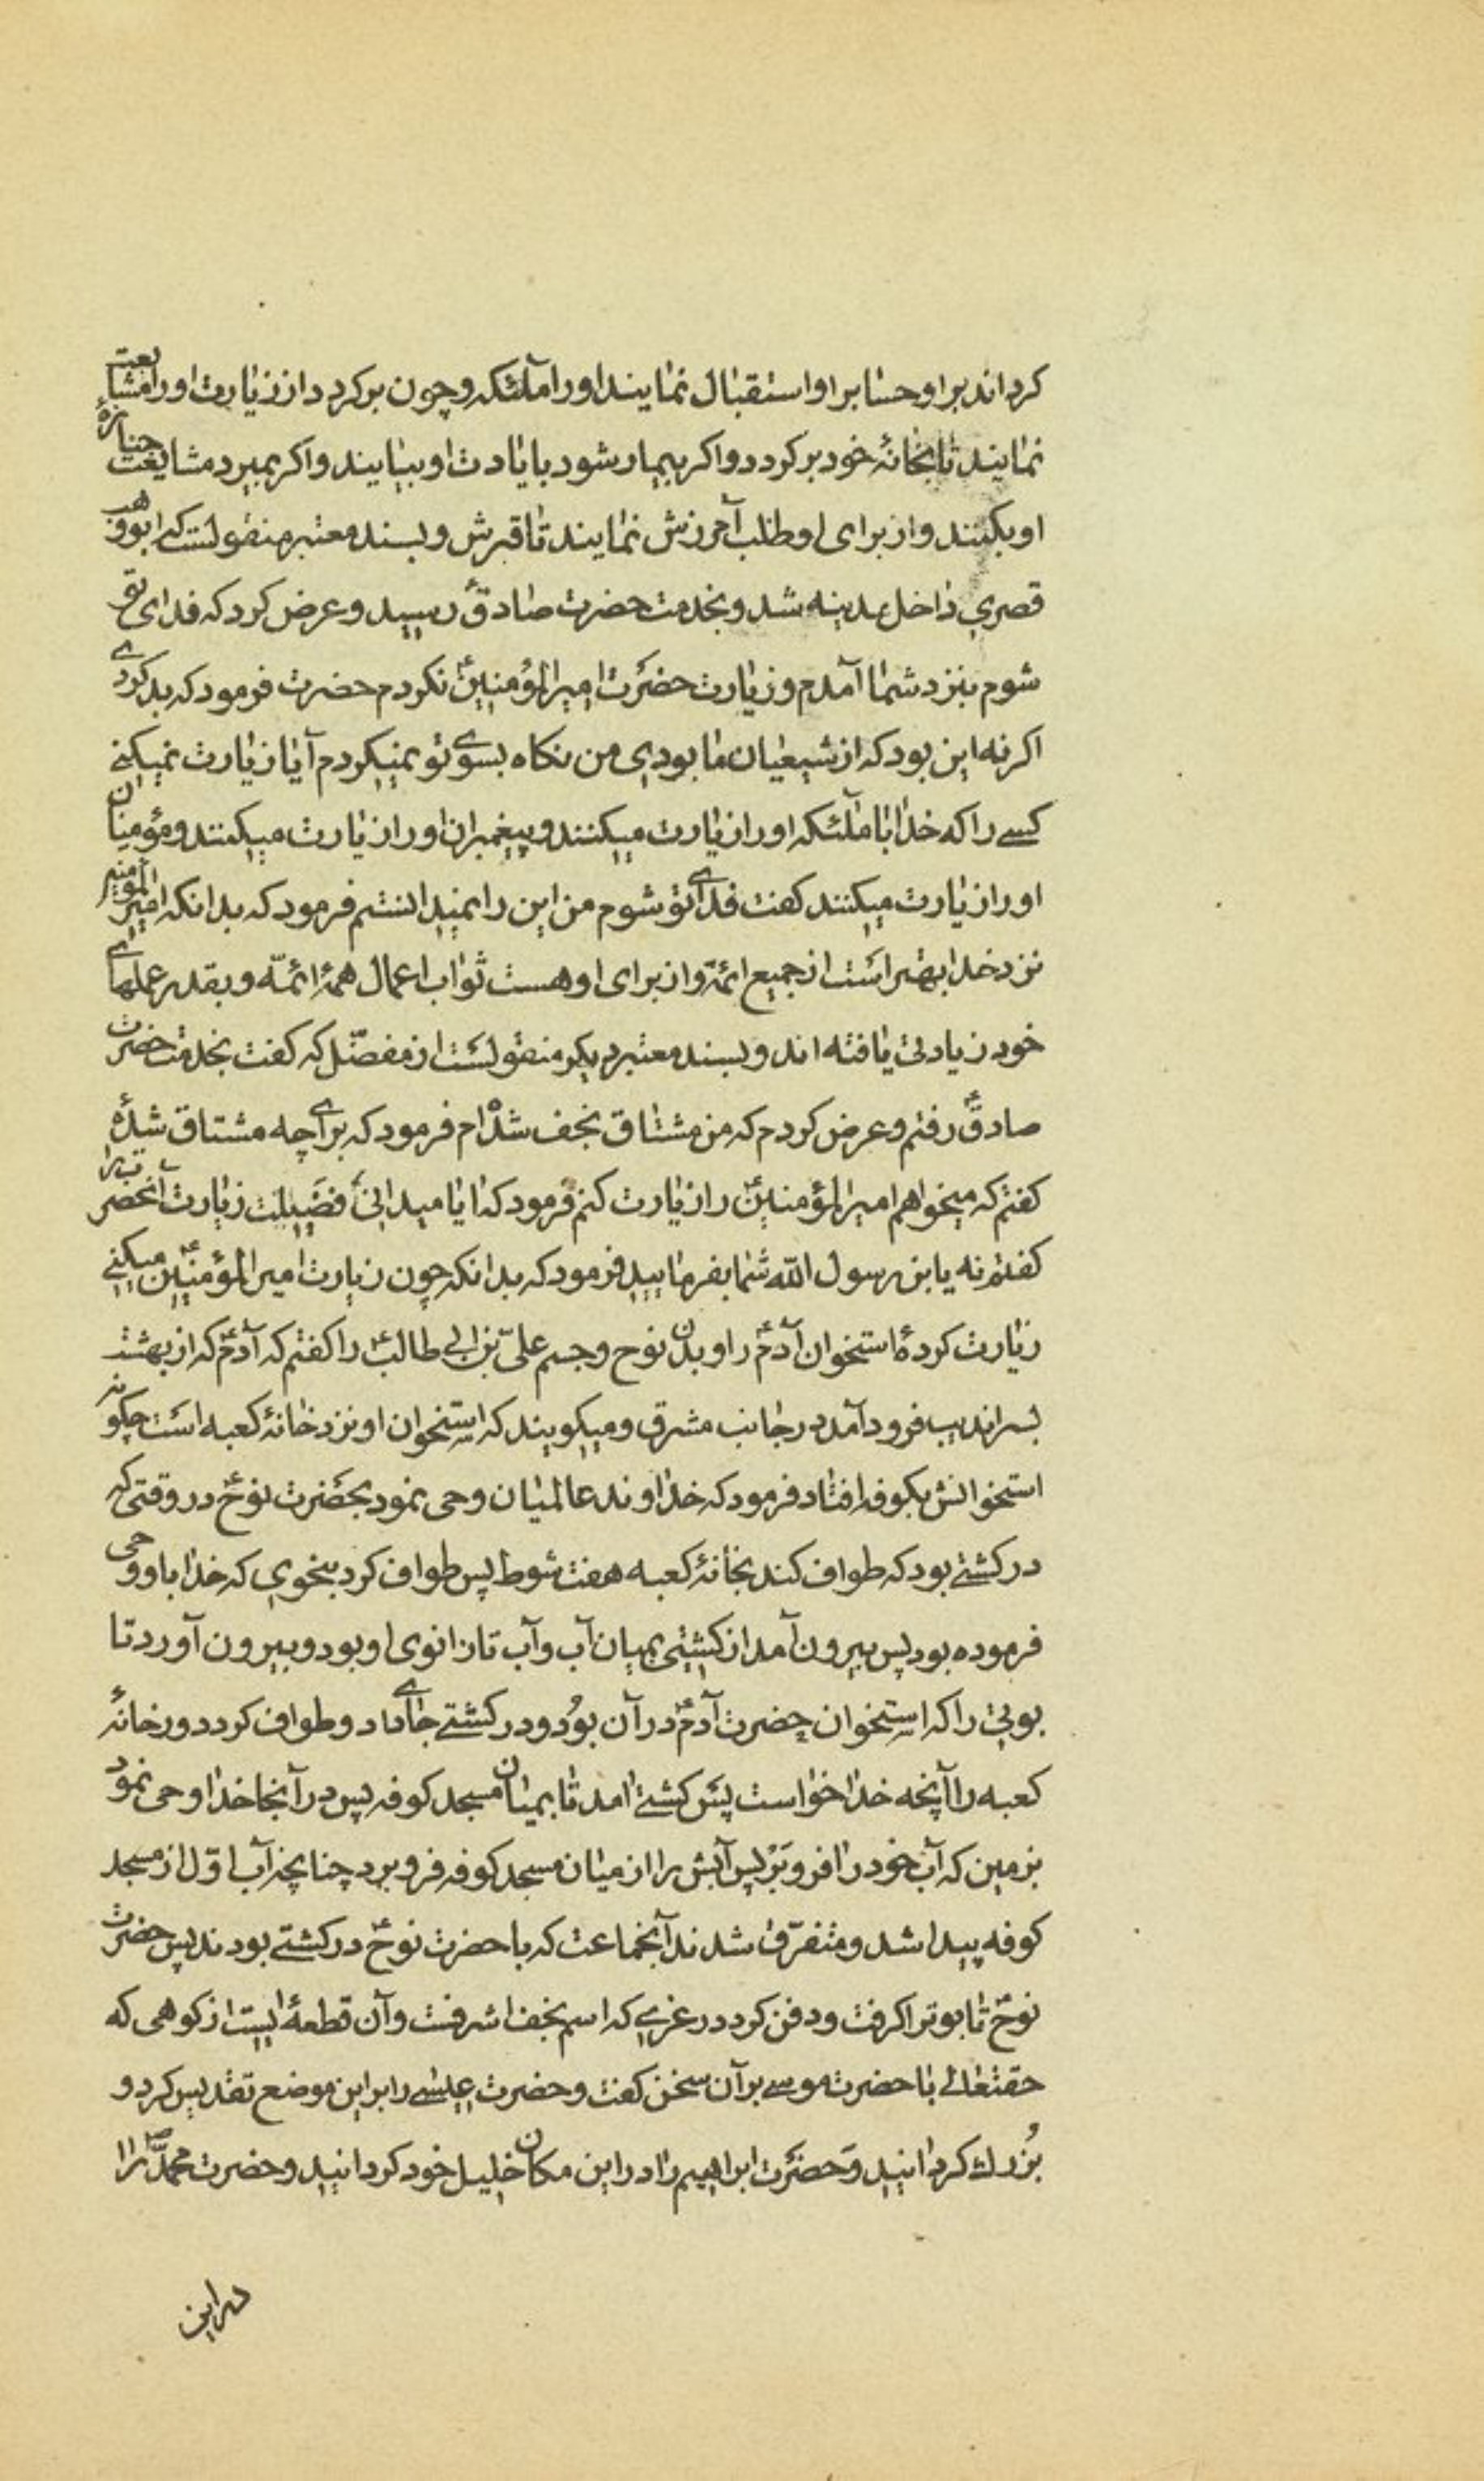 کرداند براو حسابرا و استقبال نمایند او را ملٰئکه و چون برکردد از زیارت او را مشایعت
نمایند تا بخانهٔ خود برکردد و اکر بیمار شود بایادت او بیایند و اکر بمیرد مشایعت جنازهٔ
او بکنند و از برای او طلب آمرزش نمایند تا قبرش و بسند معتبر منقولست که ابو وهب
قصری داخل مدینه شد و بخدمت حضرت صادقؑ رسید و عرض کرد که فدای تو
شوم بنزد شما آمدم و زیارت حضرت امیرالمؤمنینؑ نکردم حضرت فرمود که بد کردی
اکر نه این بود که از شیعیان ما بودی من نکاه بسوی تو نمیکردم آیا زیارت نمیکنی
کسی را که خدا با ملٰئکه او را زیارت میکنند و پیغمبران او را زیارت میکنند و مؤمنان
او را زیارت میکنند کفت فدای تو شوم من این را نمیدانستم فرمود که بدانکه امیرالمؤمنین
نزد خدا بهتر است از جمیع ائمّه و از برای او هست ثواب اعمال همهٔ ائمّه و بقدر عملهای
خود زیادتی یافته اند و بسند معتبر دیکر منقولست از مفضّل که کفت بخدمت حضرت
صادقؑ رفتم و عرض کردم که من مشتاق نجف شده‌ام فرمود که برای چه مشتاق شدهٔ
کفتم که میخواهم امیرالمؤمنینؑ را زیارت کنم فرمود که ایا میدانی فضیلت زیارت آنحضرترا
کفتم نه یابن رسول اللّه شما بفرمایید فرمود که بدانکه چون زیارت امیرالمؤمنینؑ میکنی
زیارت کردهٔ استخوان آدمؑ را و بدن نوح و جسم علیّ بن ابی طالبؑ را کفتم که آدمؑ که از بهشت
بسراندیب فرود آمد در جانب مشرق و میکویند که استخوان او نزد خانهٔ کعبه است چکونه
استخوانش بکوفه افتاد فرمود که خداوند عالمیان وحی نمود بحضرت نوحؑ در وقتی که
در کشتی بود که طواف کند بخانهٔ کعبه هفت شوط پس طواف کرد بنحوی که خدا باو وحی
فرموده بود پس بیرون آمد از کشتی بمیان آب و آب تا زانوی او بود و بیرون آورد تا
بوتی را که استخوان حضرت آدمؑ در آن بود و در کشتی جای داد و طواف کرد دور خانهٔ
کعبه را آنچه خدا خواست پس کشتی امد تا بمیان مسجد کوفه پس در آنجا خدا وحی نمود
بزمین که آب خود را فرو بر پس آبش را از میان مسجد کوفه فرو برد چنانچه آب اوّل از مسجد
کوفه پیدا شد و متفرّق شدند آنجماعت که با حضرت نوحؑ در کشتی بودند پس حضرت
نوحؑ تابوترا کرفت و دفن کرد در غری که اسم نجف اشرفت و آن قطعهٔ ایست از کوهی که
حقتعالی با حضرت موسی بر آن سخن کفت و حضرت عیسی را بر این موضع تقدیس کرد و
بزرك کردانید و حضرت ابراهیم را در این مکان خلیل خود کردانید و حضرت محمّدؐ را
در این